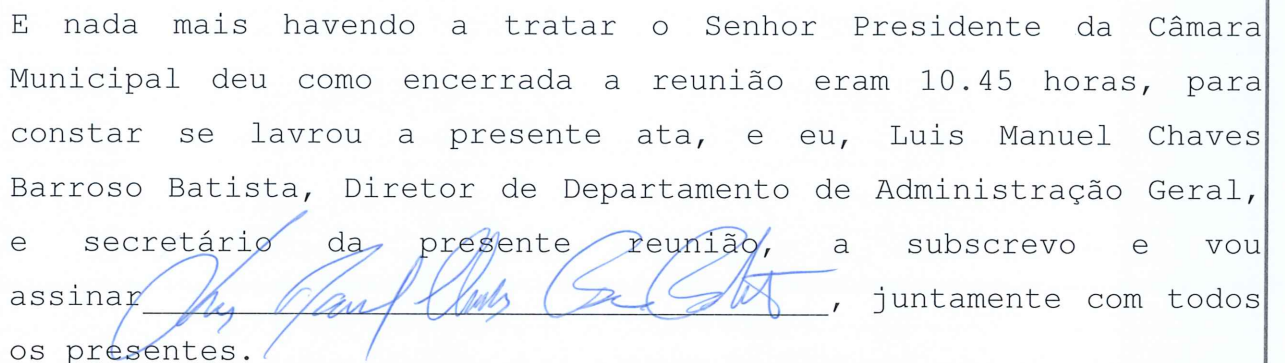 E nada mais havendo a tratar o Senhor Presidente da Câmara
Municipal deu como encerrada a reunião eram 10.45 horas, para
constar se lavrou a presente ata, e eu, Luis Manuel Chaves
Barroso Batista, Diretor de Departamento de Administração Geral,
e secretário da presente reunião, a subscrevo e vou
assinar, juntamente com todos
os presentes.